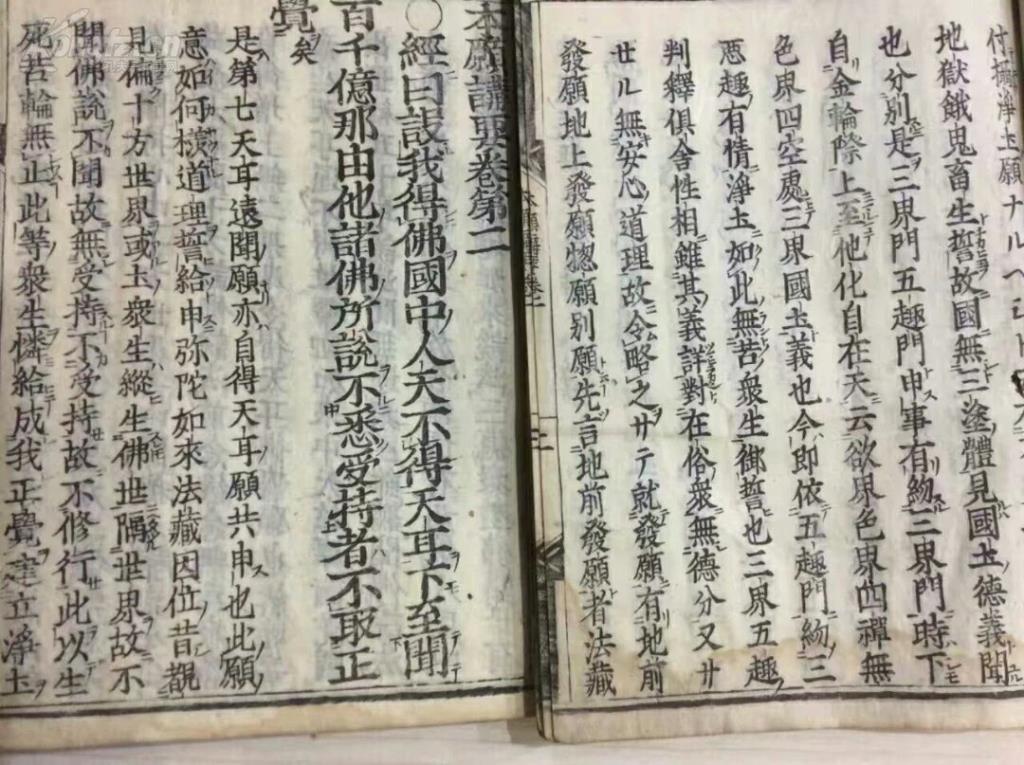 付攝淨土願ナルヘシト
地獄餓鬼畜生誓故國無三塗體見國土德義聞
也分別是三界門五趣門申事有約三界門時下
自金輪際上至他化自在天云欲界色界四禪無
色界四空處三界國土義也今即依五趣門約三
惡趣有情淨土如此無苦衆生御誓也三界五趣
判釋俱舍性相雖其義詳對在俗衆無德分又廾
廿ル無安心道理故令略之廾テ就發願有地前
發願地上發願惣願别願先言地前發願者法藏
本願講要卷第二
〇經曰設我得佛國中人天不得天耳下至聞
百千億那由他諸佛所說不悉受持者不取正
覺矣
是第七天耳遠聞願亦自得天耳願共申也此願
意如何樣道理誓給申弥陀如來法藏因位昔覩
見徧十方世界或土衆生縱生佛世隔世界故不
聞佛說不聞故無受持不受持故不修行此以生
死苦輪無止此等衆生憐給成我正覺建立淨土